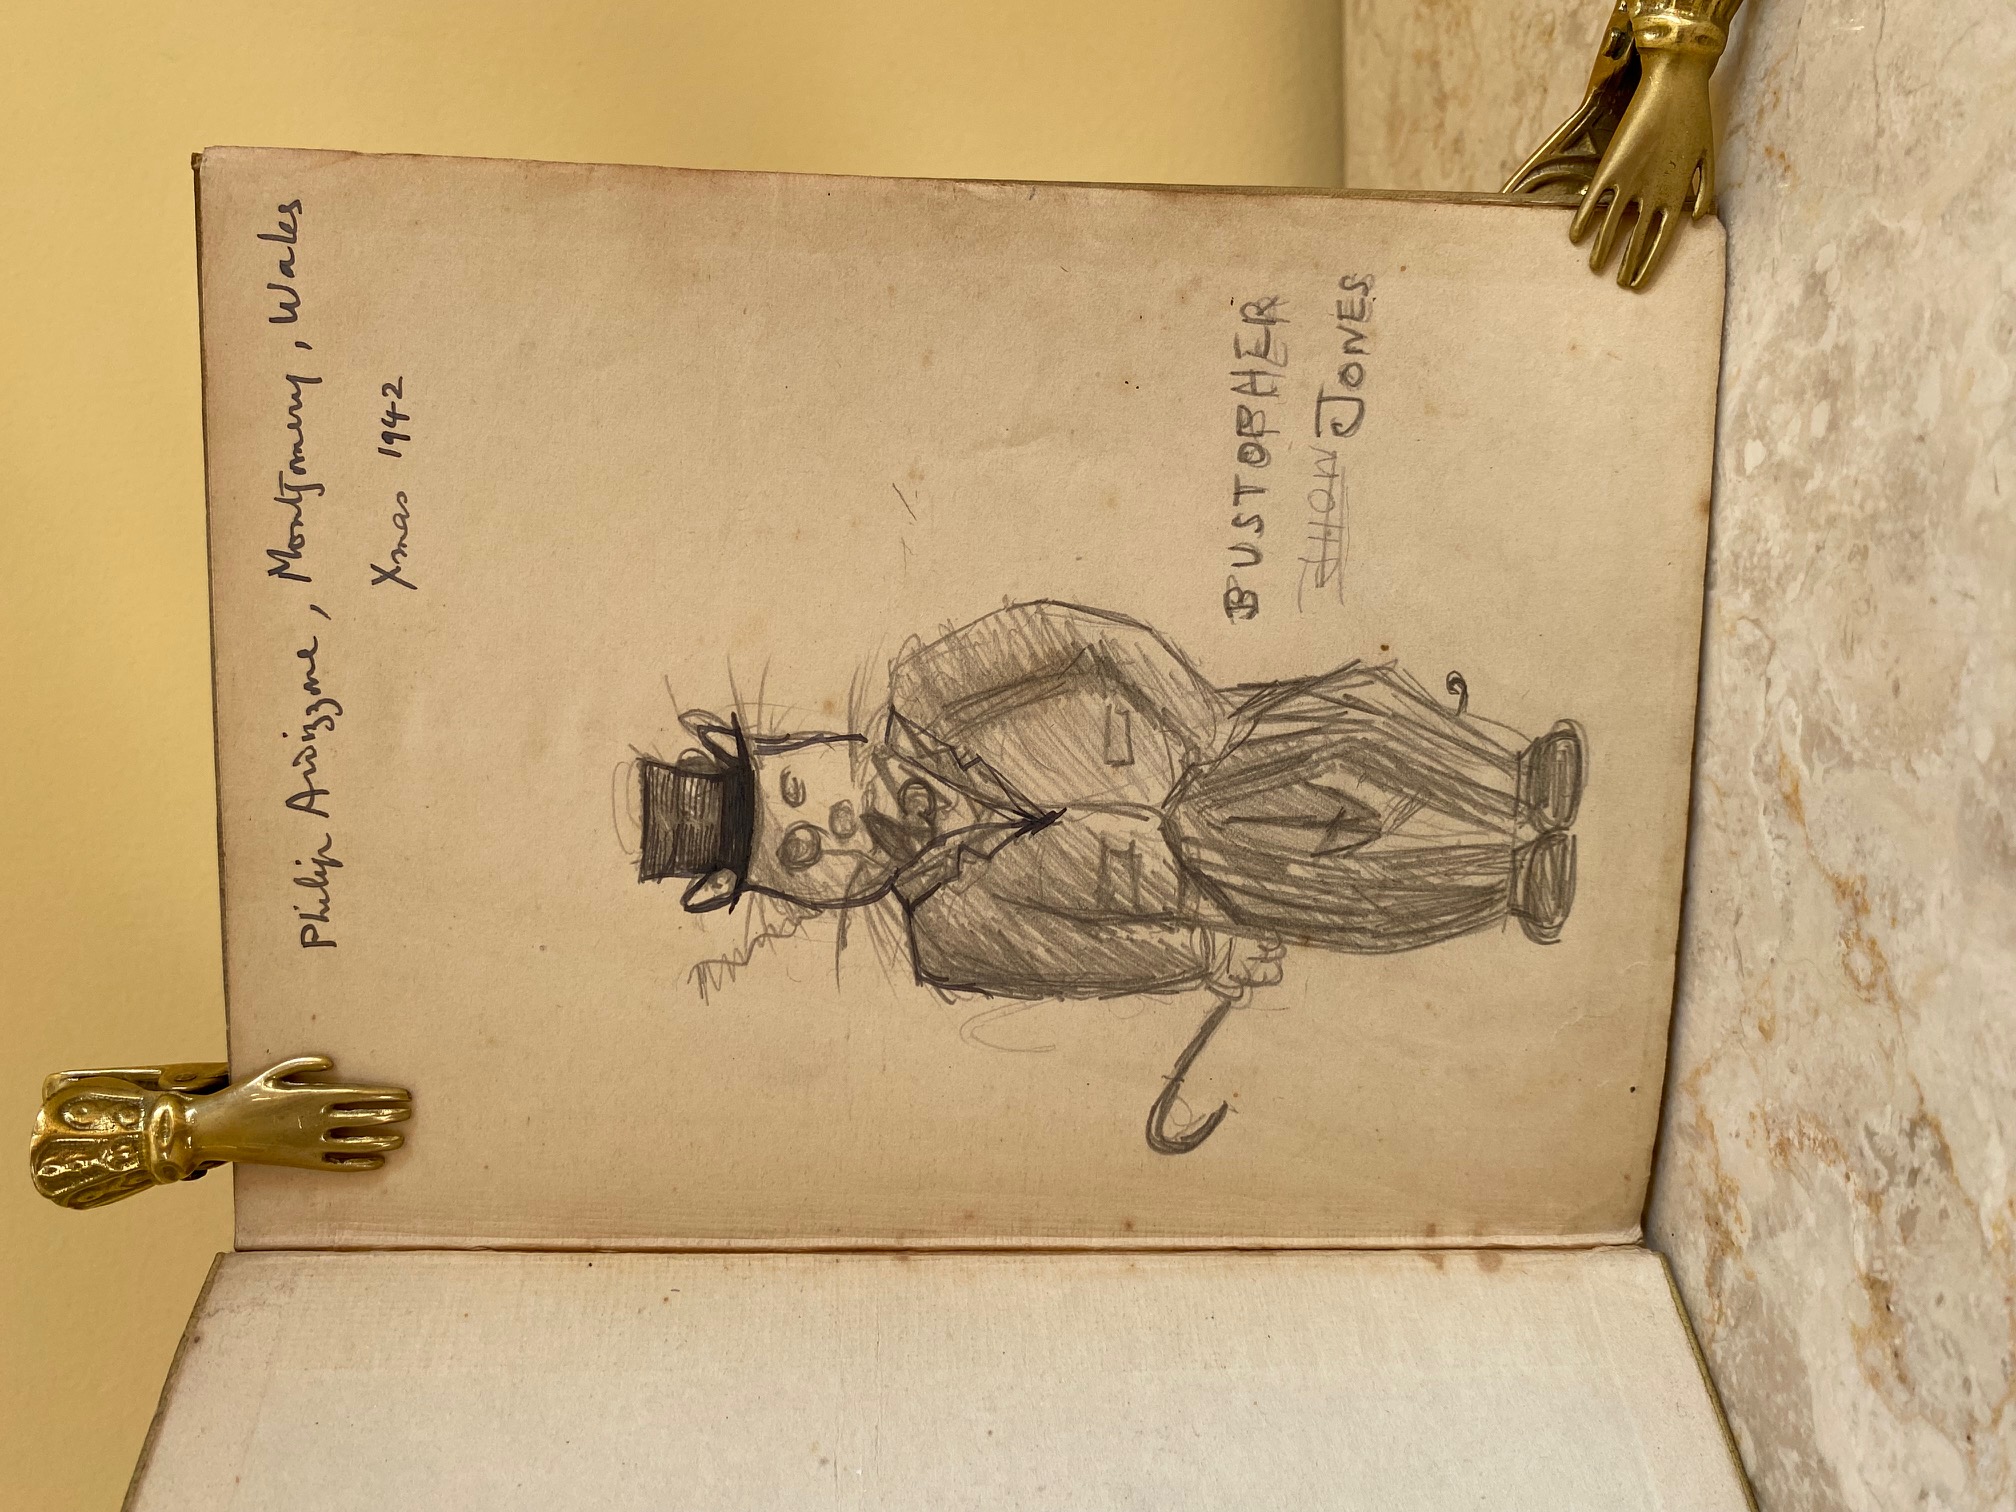 Philip Ardizzone, Montgomery, Wales
Xmas 1942
BUSTOPHER
JHON JONES